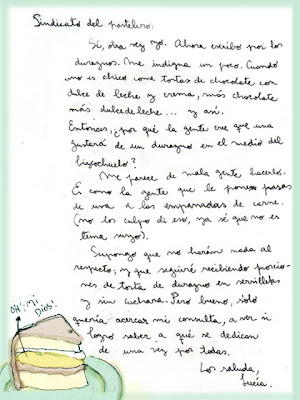 Sindicato del pastelero:
Sí, otra vez yo. Ahora escribo por los
duraznos. Me indigna un poco. Cuando
uno es chico come tortas de chocolate con
dulce de leche y crema, más chocolate
más dulcedeleche... y así.
Entonces, ¿por qué la gente cree que uno
gustará de un durazno en el medio del
bizcochuelo?
Me parece de mala gente hacerlo.
Es como la gente que le ponen pasas
de uva a las empanadas de carne.
(no los culpo de eso, ya sé que no es
tema suyo).
Supongo que no harán nada al
respecto, y que seguiré recibiendo porcio-
nes de torta de durazno en servilletas
y sin cuchara. Pero bueno, sólo
quería acercar mi consulta, a ver si
logro saber a qué se dedican
de una vez por todas.
Los saluda,
Lucía.
OH! Mi
Dios!